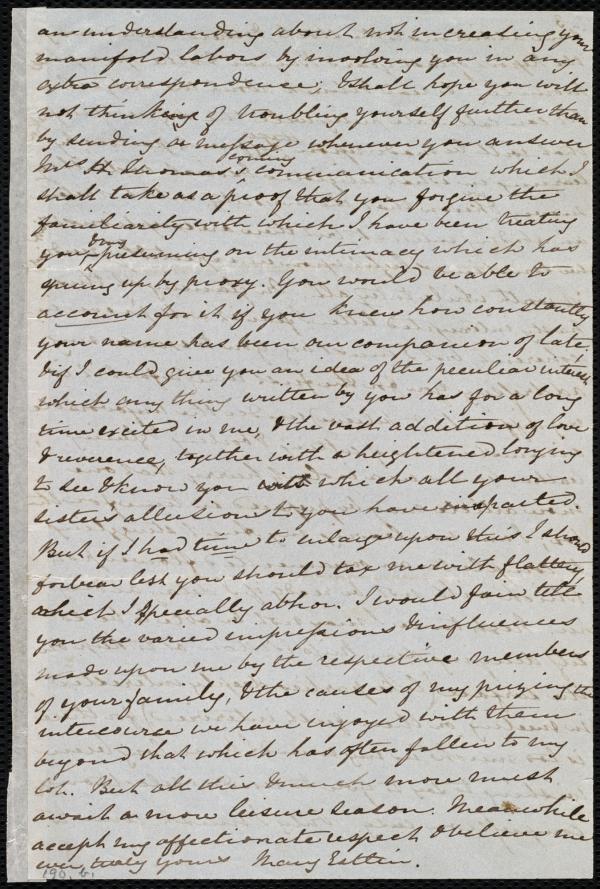 an understanding about not increasing your
manifold labors by involving you in any
extra correspondence; & shall hope you will
not thinking of troubling yourself further than
by sending a message whenever you answer
Mrs H. Thomas's coming communication which I
shall take as a proof that you forgive the
familiarity with which I have been treating
you thus presuming on the intimacy which has
sprung up by proxy. You would be able to
account for it if you knew how constantly
your name has been our companion of late,
& if I could give you an idea of the peculiar interest
which any thing written by you has for a long
time excited in me, & the vast addition of love
& reverence, together with a heightened longing
to see & know you with which all your
sister's allusions to you have imparted.
But if I had time to enlarge upon this I should
forbear lest you should tax me with flattery,
which I specially abhor. I would fain tell
you the varied impressions & influences
made upon me by the respective members
of your family, & the causes of my prizing the
intercourse we have enjoyed with them
beyond that which has often fallen to my
lot. But all this & much more must
await a more leisure season. Meanwhile
accept my affectionate respect & believe me
ever truly yours Mary Estlin.
190. b.